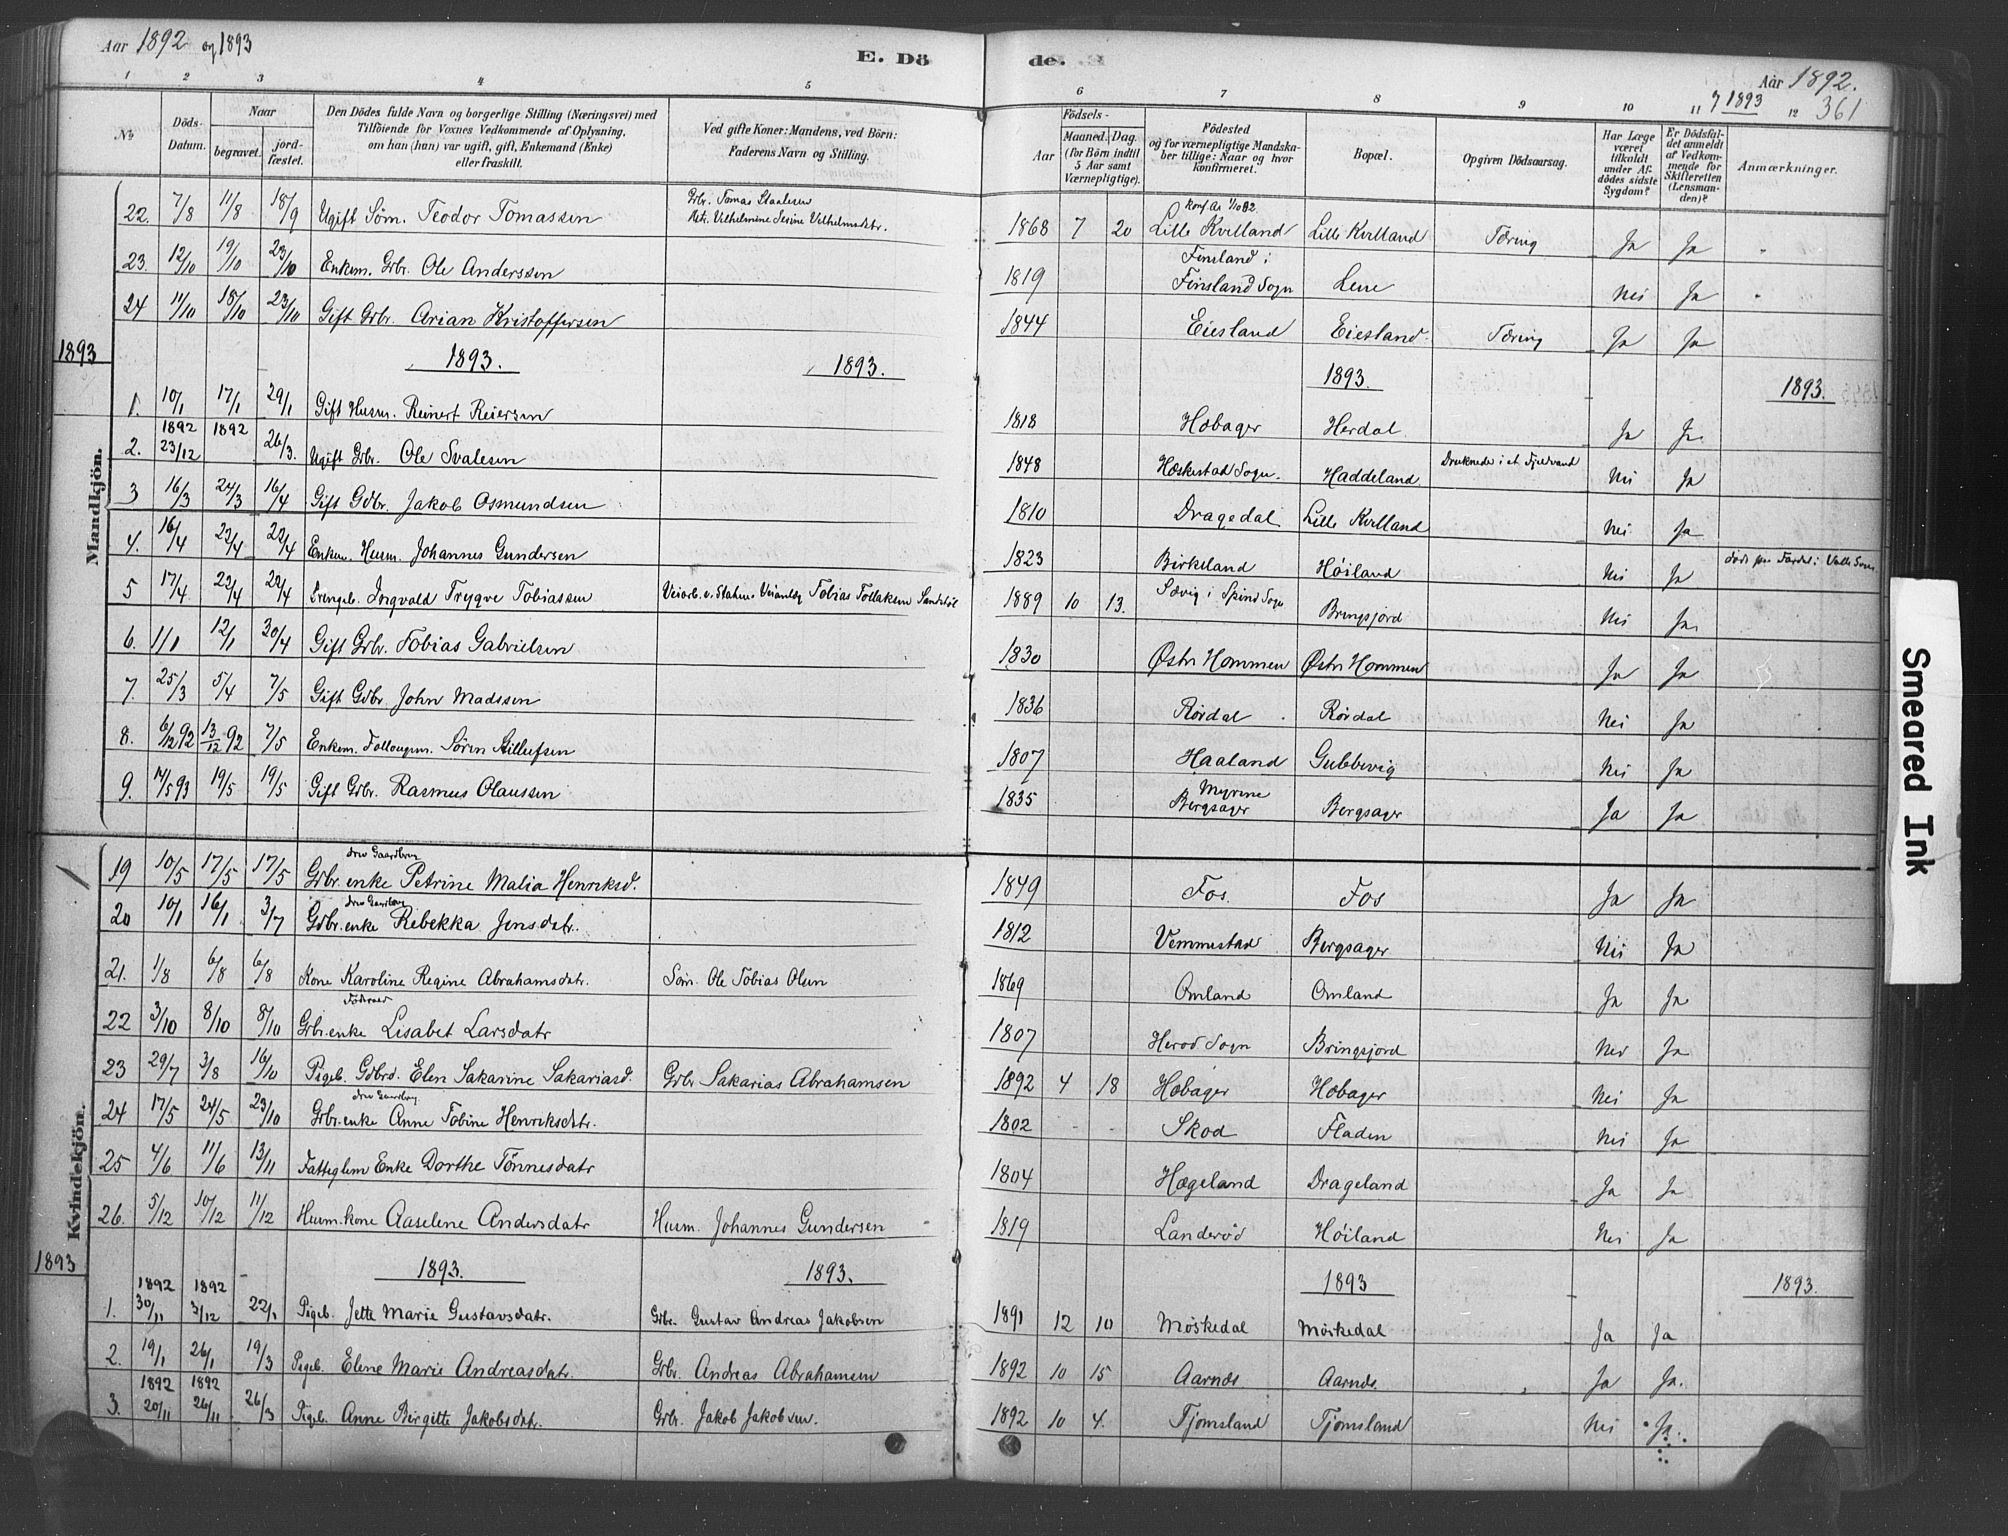 Aar 1892 og 1893
E. Dö
de.
Aar 1892.
7 1893
361
1 2 3 4 5 6 7 8 9 10 11 12
No
Döds-Datum.
Naar
begravet.
jord-fæstet.
Den Dödes fulde Navn og borgerlige Stilling (Næringsvei) med
Tilföiende for Voxnes Vedkommende af Oplysning,
om han (hun) var ugift, gift, Enkemand (Enke)
eller fraskilt.
Ved gifte Koner: Mandens, ved Börn:
Faderens Navn og Stilling.
Födsels-
Aar
Maaned. Dag.
(for Börn indtil
5 Aar samt
Værnepligtige).
Födested
og for værnepligtige Mandska-
ber tillige: Naar og hvor
konfirmeret.
Bopæl.
Opgiven Dödsaarsag.
Har Læge
været
tilkaldt
under Af-
dödes sidste
Sygdom?
Er Dödsfal-
det anmeldt
af Vedkom-
mende for
Skifteretten
(Lensman-
den)?
Anmærkninger.
Mandkjön.
22. 7/8 11/8 18/9 Ugift Söm. Teodor Tomassen Grbr. Tomas Staalesen 1868 7 20 Lille Kvilland Lille Kvilland Tæring Ja Ja
23. 12/10 19/10 23/10 Enkem. Grbr. Ole Anderssen 1819 Finsland i Finsland Sogn Lene Nei Ja
24 11/10 18/10 23/10 Gift Grbr. Arian Kristoffersen 1844 Eiesland Eiesland Tæring Ja Ja
1893 1893. 1893. 1893. 1893.
1. 10/1 17/1 29/1 Gift Husm. Reinert Reiersen 1818 Hobager Herdal Ja Ja
2. 1892 23/12 1892 26/3. Ugift Grbr. Ole Svalesen 1848 Heskestad Sogn. Haddeland Druknede i et Fjeldvand Nei Ja
3 16/3 24/3 16/4 Gift Gdbr. Jakob Osmundsen 1810 Dragedal Lille Kvilland Nei Ja
4. 16/4 22/4 22/4 Enkem. Husm. Johannes Gundersen 1823 Birkeland Höiland Nei Ja
5 17/4 22/4 22/4 Drengeb. Ingvald Trygve Tobiassen Veiarb. v. Statens Veianlæg Tobias Tollaksen Sandstöl 1889 10 13. Sævig i Spind Sogn Bringsjord Nei Ja
6. 1/1 12/1 30/4 Gift Grbr. Tobias Gabrielsen 1830 Østr. Hommen Østr. Hommen Ja Ja
7. 25/3 5/4 7/5 Gift Gdbr. John Madssen 1836 Rördal Rördal Nei Ja
8. 6/12 92 13/12 92 7/5 Enkem. Sören Stillufsen 1807 Haaland Gubbevig Nei Ja
9. 14/5 93 19/5 19/5 Gift Grbr. Rasmus Olaussen 1835 Bergsager Bergsager Ja Ja
Kvindekjön.
19 10/5 17/5 17/5 Grbr. enke Petrine Malia Henriksd. 1849 Fos. Fos Ja Ja
20 10/1 16/1 3/7 Gdbr. enke Rebekka Jensdatr. 1812 Vemmestad Bergsager Nei Ja
21. 1/8 6/8 6/8 Kone Karoline Regine Abrahamsdatr. Söm. Ole Tobias Olsen 1869 Omland Omland Ja Ja
22 3/10 8/10 8/10 Grbr. enke Lisabet Larsdatr 1807 Herod Sogn Bringsjord Nei Ja
23 29/7 3/8 16/10 Pigeb. Gdbrd. Elen Sakarine Sakariasd. Grbr Sakarias Abrahamsen 1892 4 18 Hobager Hobager Nei Ja
24 17/5 24/5 23/10 Grbr. enke Anne Tobine Henriksdtr. 1802 - - Skod Fladen Nei Ja
25 4/6 11/6 13/11 Fatteglem Enke Dorthe Tönnesdatr 1804 Hægeland Drageland Ja Ja
26. 5/12 10/12 11/12 Husm. kone Aaselene Andersdatr Husm. Johannes Gundersen 1819 Landeröd Höiland Nei Ja
1893 1893. 1893. 1893 1893.
1. 1892 30/11 1892 3/12 22/1 Pigeb. Jette Marie Gustavsdatr. Grbr. Gustav Andreas Jakobsen 1891 12 10 Möskedal Möskedal Ja Ja
2. 19/1 26/1 19/3 Pigeb. Elene Marie Andreasdatr. Grbr. Andreas Abrahamsen 1892 10 15 Aarnes Aarnes Ja Ja.
3. 1892 20/11 1892 26/11 26/3 Pigeb. Anne Birgitte Jakobsdtr. Grbr. Jakob Jakobsen. 1892 10 4. Tjomsland Tjomsland Nei Ja.
Smeared Ink